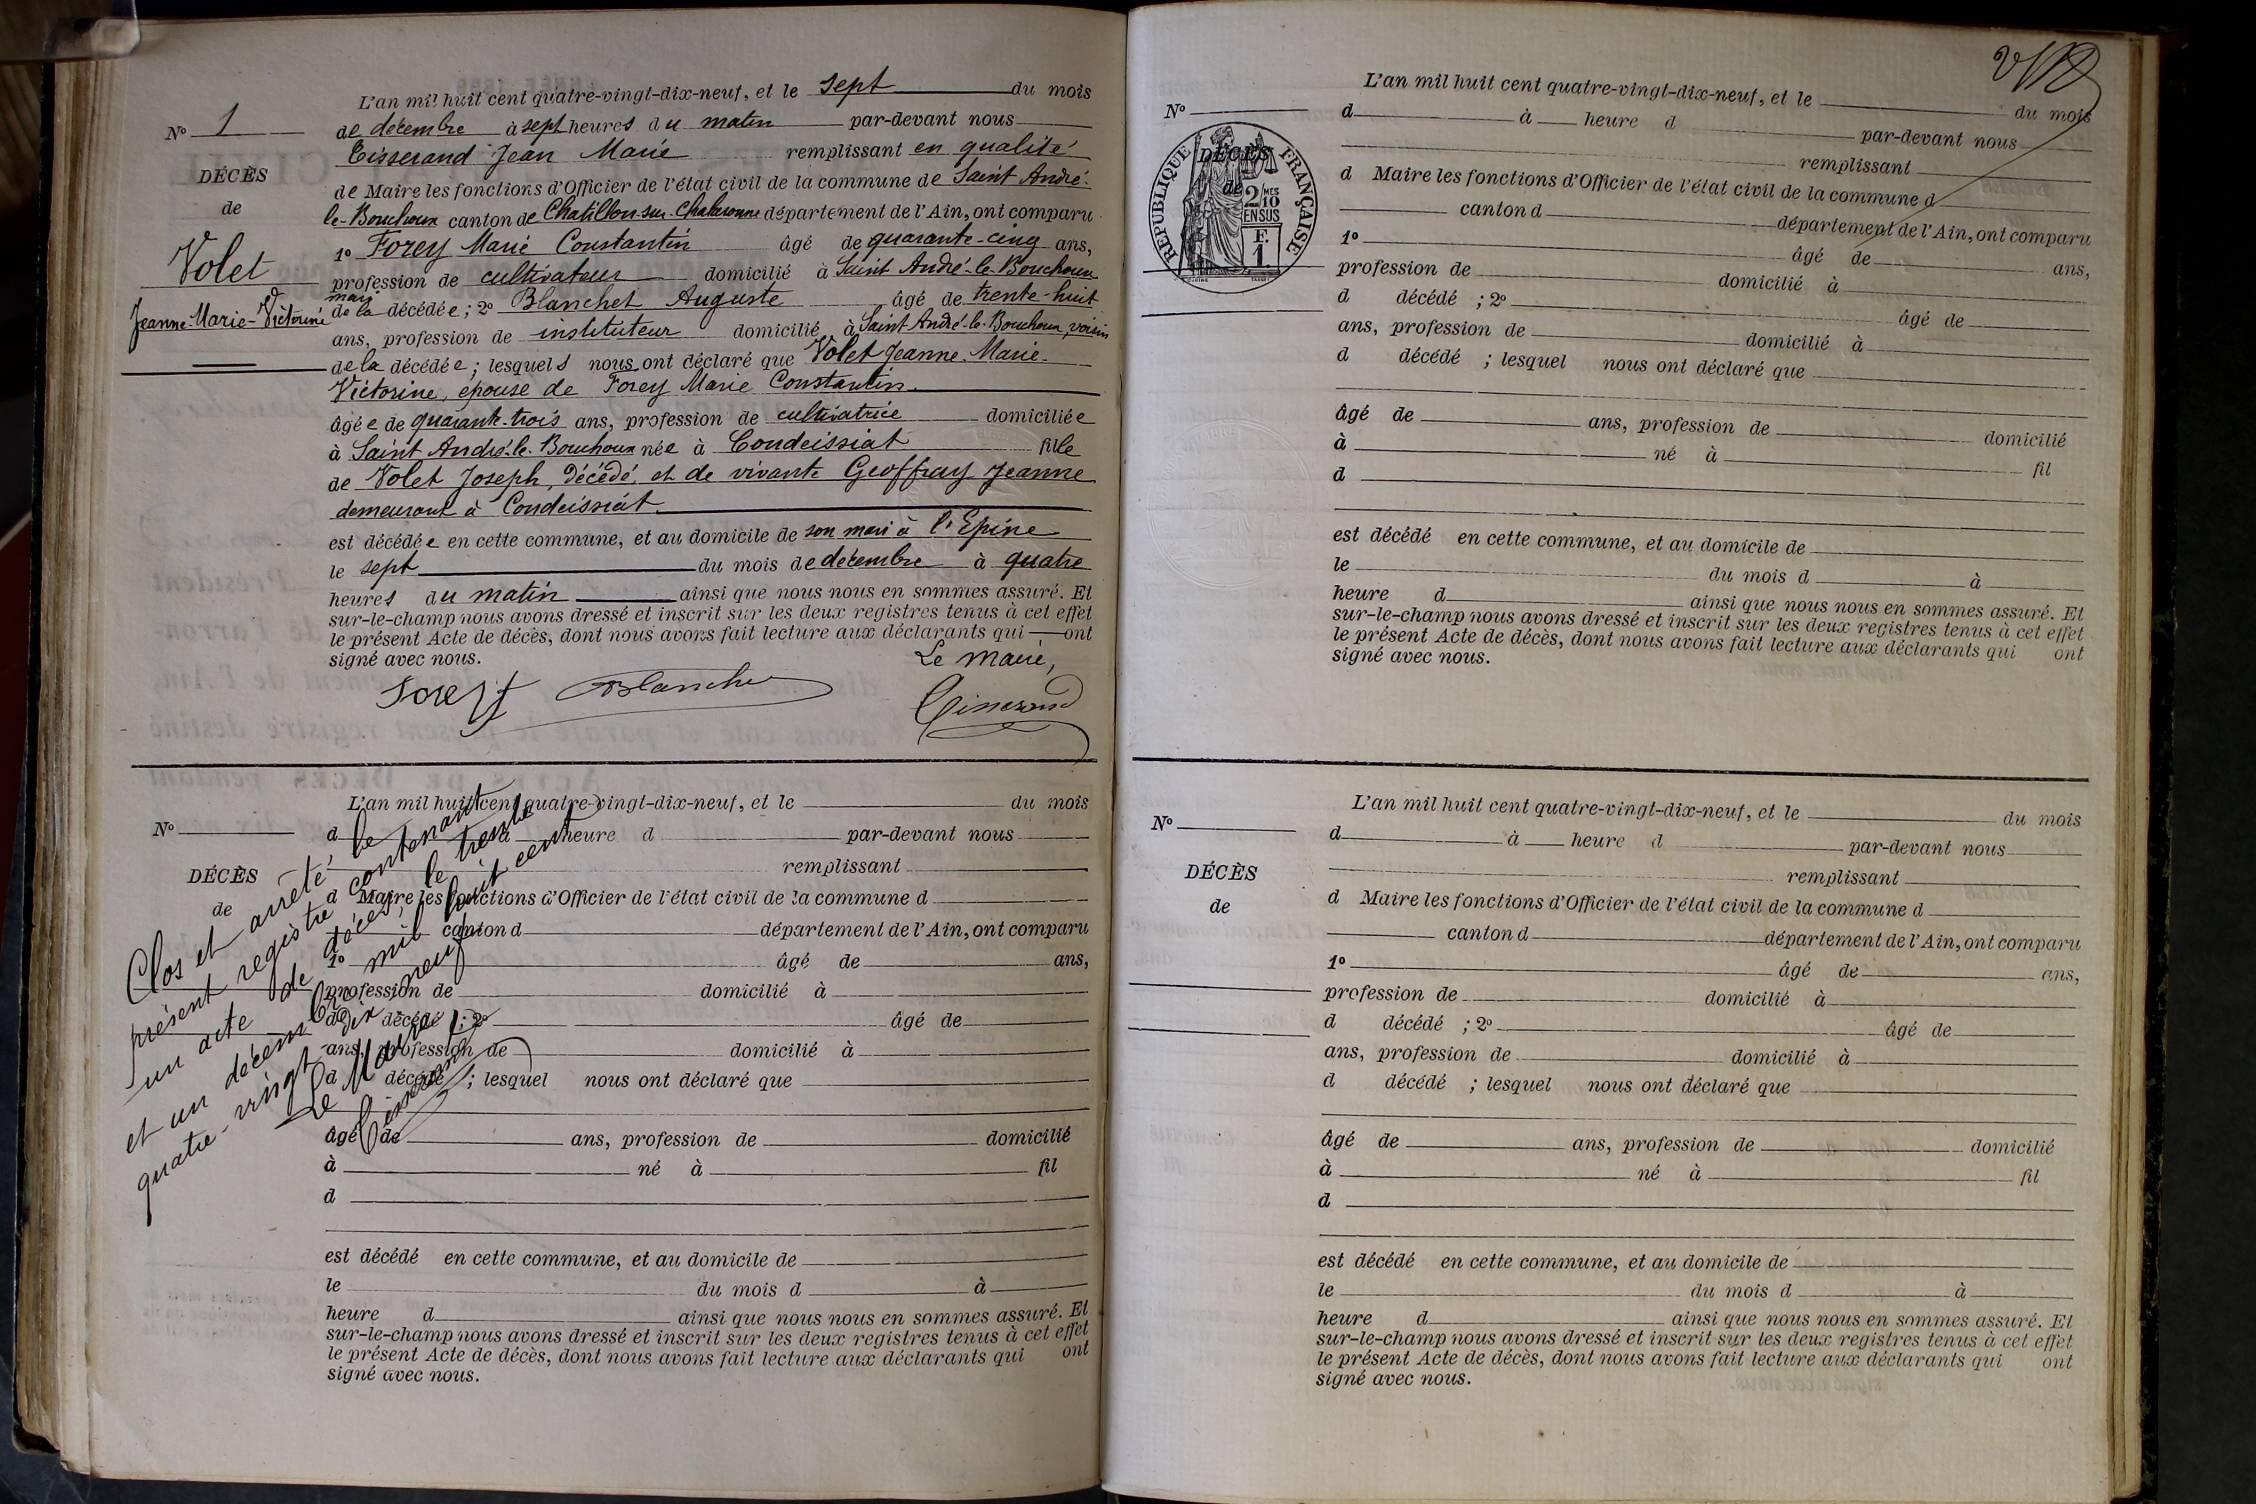 L'an mil huit cent quatre-vingt-dix-neuf, et le sept du mois
N° 1
de décembre à sept heures du matin par-devant nous
Tisserand Jean Marie remplissant en qualité
DÉCÈS
de Maire les fonctions d'Officier de l'état civil de la commune de Saint André-
de
le-Bouchoux canton de Chatillon-sur-Chalaronne département de l'Ain, ont comparu
Volet
1° Forey Marie Constantin âgé de quarante-cinq ans,
profession de cultivateur domicilié à Saint André-le-Bouchoux
Jeanne-Marie-Victorine
mari
de la décédée ; 2° Blanchet Auguste âgé de trente-huit
ans, profession de instituteur domicilié à Saint André-le-Bouchoux, voisin
de la décédée ; lesquels nous ont déclaré que Volet Jeanne-Marie-
Victorine, épouse de Forey Marie Constantin.
âgée de quarante-trois ans, profession de cultivatrice domiciliée
à Saint André-le-Bouchoux née à Condeissiat fille
de Volet Joseph, décédé, et de vivante Geoffray Jeanne
demeurant à Condeissiat.
est décédée en cette commune, et au domicile de son mari à l'Epine
le sept du mois de décembre à quatre
heures du matin ainsi que nous nous en sommes assuré. Et
sur-le-champ nous avons dressé et inscrit sur les deux registres tenus à cet effet
le présent Acte de décès, dont nous avons fait lecture aux déclarants qui ont
signé avec nous.
Le Maire,
Forey Blanchet Tisserand
L'an mil huit cent quatre-vingt-dix-neuf, et le du mois
N°
d à heure d par-devant nous
remplissant
DÉCÈS
d Maire les fonctions d'Officier de l'état civil de la commune d
de
canton d département de l'Ain, ont comparu
1° âgé de ans,
profession de domicilié à
d décédé ; 2° âgé de
ans, profession de domicilié à
d décédé ; lesquel nous ont déclaré que
âgé de ans, profession de domicilié
à né à fil
d
est décédé en cette commune, et au domicile de
le du mois d à
heure d ainsi que nous nous en sommes assuré. Et
sur-le-champ nous avons dressé et inscrit sur les deux registres tenus à cet effet
le présent Acte de décès, dont nous avons fait lecture aux déclarants qui ont
signé avec nous.
Clos et arrêté, le
présent registre contenant
un acte de décès, le trente
et un décembre mil huit cent
quatre-vingt dix neuf
Le Maire :
Tisserand
L'an mil huit cent quatre-vingt-dix-neuf, et le du mois
N°
d à heure d par-devant nous
remplissant
DÉCÈS
de
RÉPUBLIQUE FRANÇAISE
2/10
MES
EN SUS
F.
1.
d Maire les fonctions d'Officier de l'état civil de la commune d
canton d département de l'Ain, ont comparu
1° âgé de ans,
profession de domicilié à
d décédé ; 2° âgé de
ans, profession de domicilié à
d décédé ; lesquel nous ont déclaré que
âgé de ans, profession de domicilié
à né à fil
d
est décédé en cette commune, et au domicile de
le du mois d à
heure d ainsi que nous nous en sommes assuré. Et
sur-le-champ nous avons dressé et inscrit sur les deux registres tenus à cet effet
le présent Acte de décès, dont nous avons fait lecture aux déclarants qui ont
signé avec nous.
L'an mil huit cent quatre-vingt-dix-neuf, et le du mois
N°
d à heure d par-devant nous
remplissant
DÉCÈS
d Maire les fonctions d'Officier de l'état civil de la commune d
de
canton d département de l'Ain, ont comparu
1° âgé de ans,
profession de domicilié à
d décédé ; 2° âgé de
ans, profession de domicilié à
d décédé ; lesquel nous ont déclaré que
âgé de ans, profession de domicilié
à né à fil
d
est décédé en cette commune, et au domicile de
le du mois d à
heure d ainsi que nous nous en sommes assuré. Et
sur-le-champ nous avons dressé et inscrit sur les deux registres tenus à cet effet
le présent Acte de décès, dont nous avons fait lecture aux déclarants qui ont
signé avec nous.